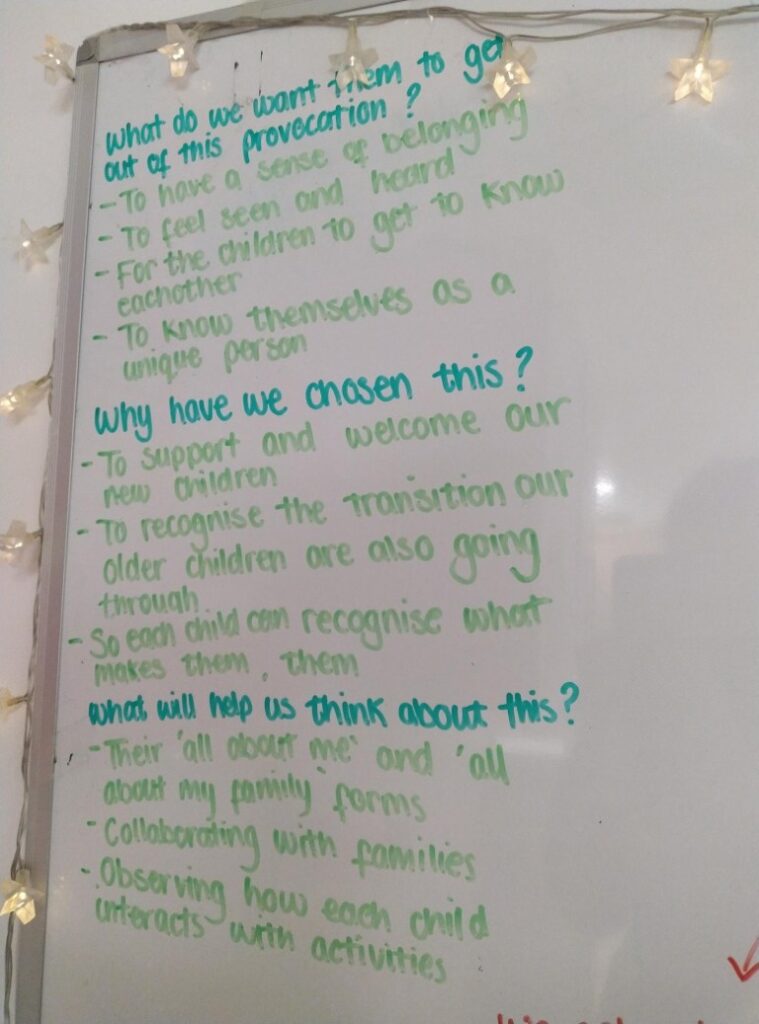 what do we want them to get
out of this provocation ?
- To have a sense of belonging
- To feel seen and heard
- For the children to get to know
eachother
- To know themselves as a
unique person
why have we chosen this ?
- To support and welcome our
new children
- To recognise the transition our
older children are also going
through
- So each child can recognise what
makes them, them
what will help us think about this ?
- Their 'all about me' and 'all
about my family' forms
- Collaborating with families
- Observing how each child
interacts with activities